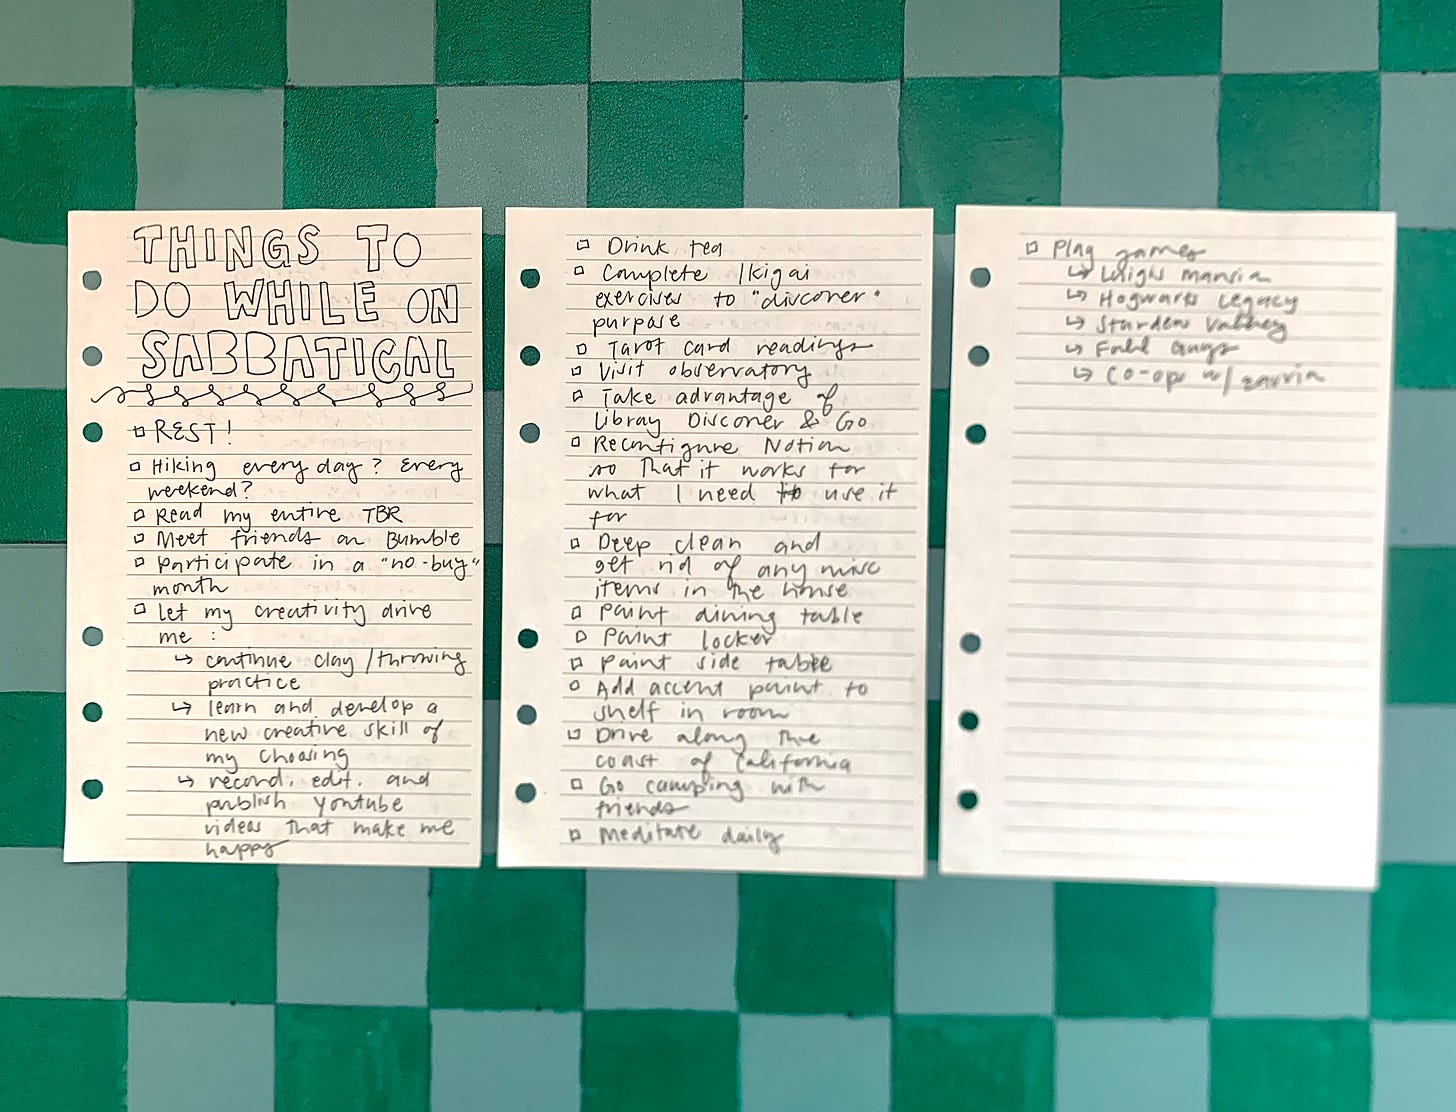 THINGS TO
DO WHILE ON
SABBATICAL
REST!
Hiking every day? Every
weekend?
Read my entire TBR
Meet friends on Bumble
Participate in a "no-buy"
month
Let my creativity drive
me:
↳ continue clay/throwing
practice
↳ learn and develop a
new creative skill of
my choosing
↳ record, edit, and
publish youtube
videos that make me
happy
Drink tea
Complete Ikigai
exercises to "discover"
purpose
Tarot card readings
Visit observatory
Take advantage of
Library Discover & Go
Reconfigure Notion
so that it works for
what I need to use it
for
Deep clean and
get rid of any misc
items in the house
Paint dining table
Paint locker
Paint side table
Add accent paint to
shelf in room
Drive along the
coast of California
Go camping with
friends
Meditate daily
Play games
↳ Luigi's mansion
↳ Hogwarts Legacy
↳ Stardew Valley
↳ Fall Guys
↳ Co-ops w/